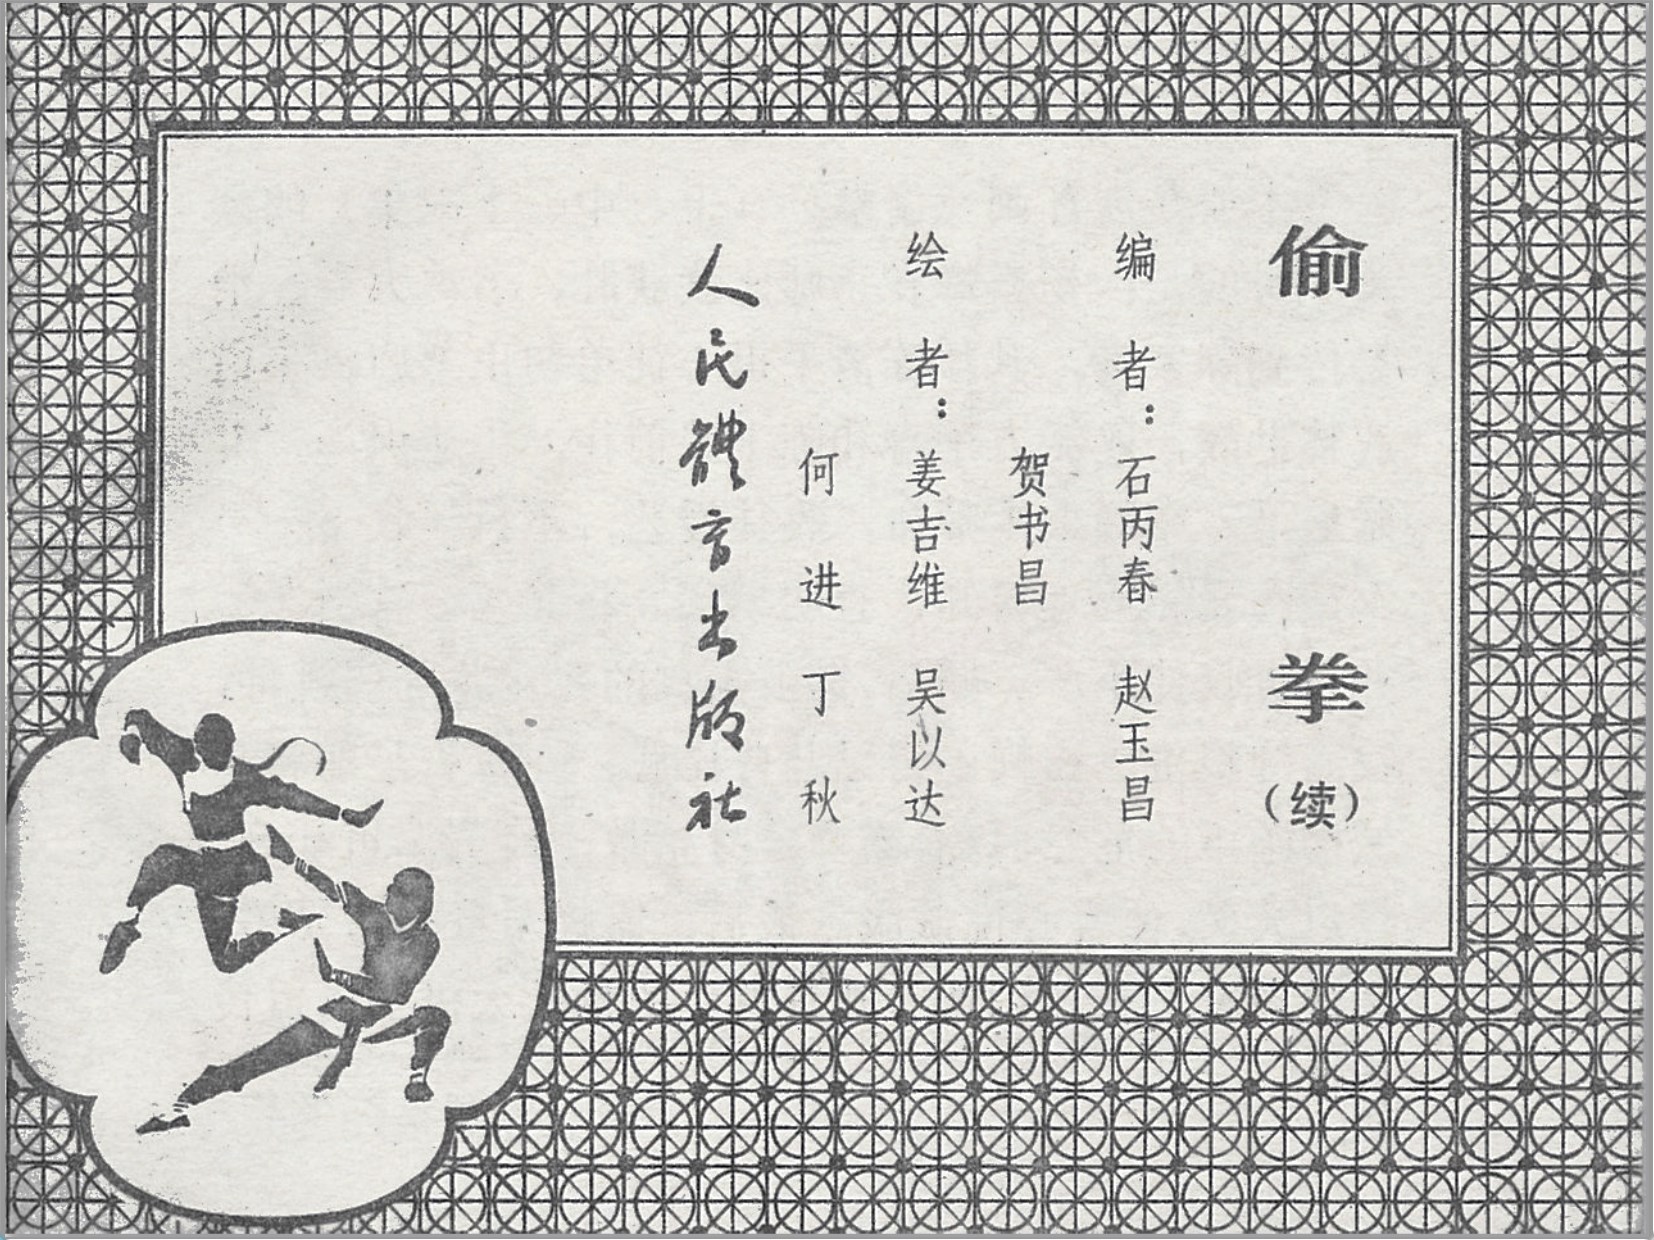 偷拳（续）
编者：石丙春 赵玉昌
贺书昌
绘者：姜吉维 吴以达
何进 丁秋
人民體育出版社